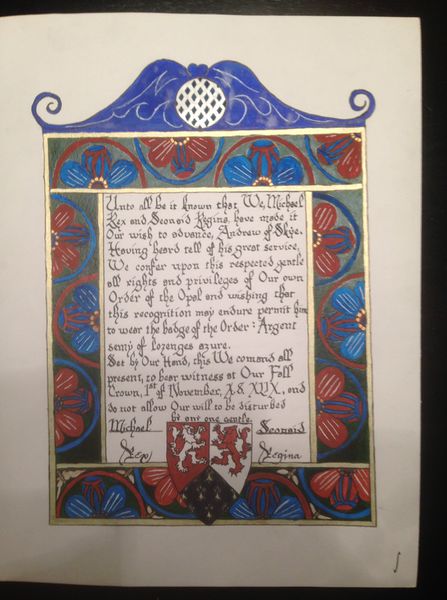 Unto all be it known that We, Michael
Rex and Seonaid Regina, have made it
Our wish to advance, Andrew of Skye.
Having heard tell of his great service,
We confer upon this respected gentle
all rights and privileges of Our own
Order of the Opal and wishing that
this recognition may endure permit him
to wear the badge of the Order: Argent
semy of lozenges azure.
Set by Our Hand, this We comand all
present, to bear witness at Our Fall
Crown, 1st of November, A.S. XLIX, and
do not allow Our will to be disturbed
by any one gentle.
Michael Seonaid
Rex Regina